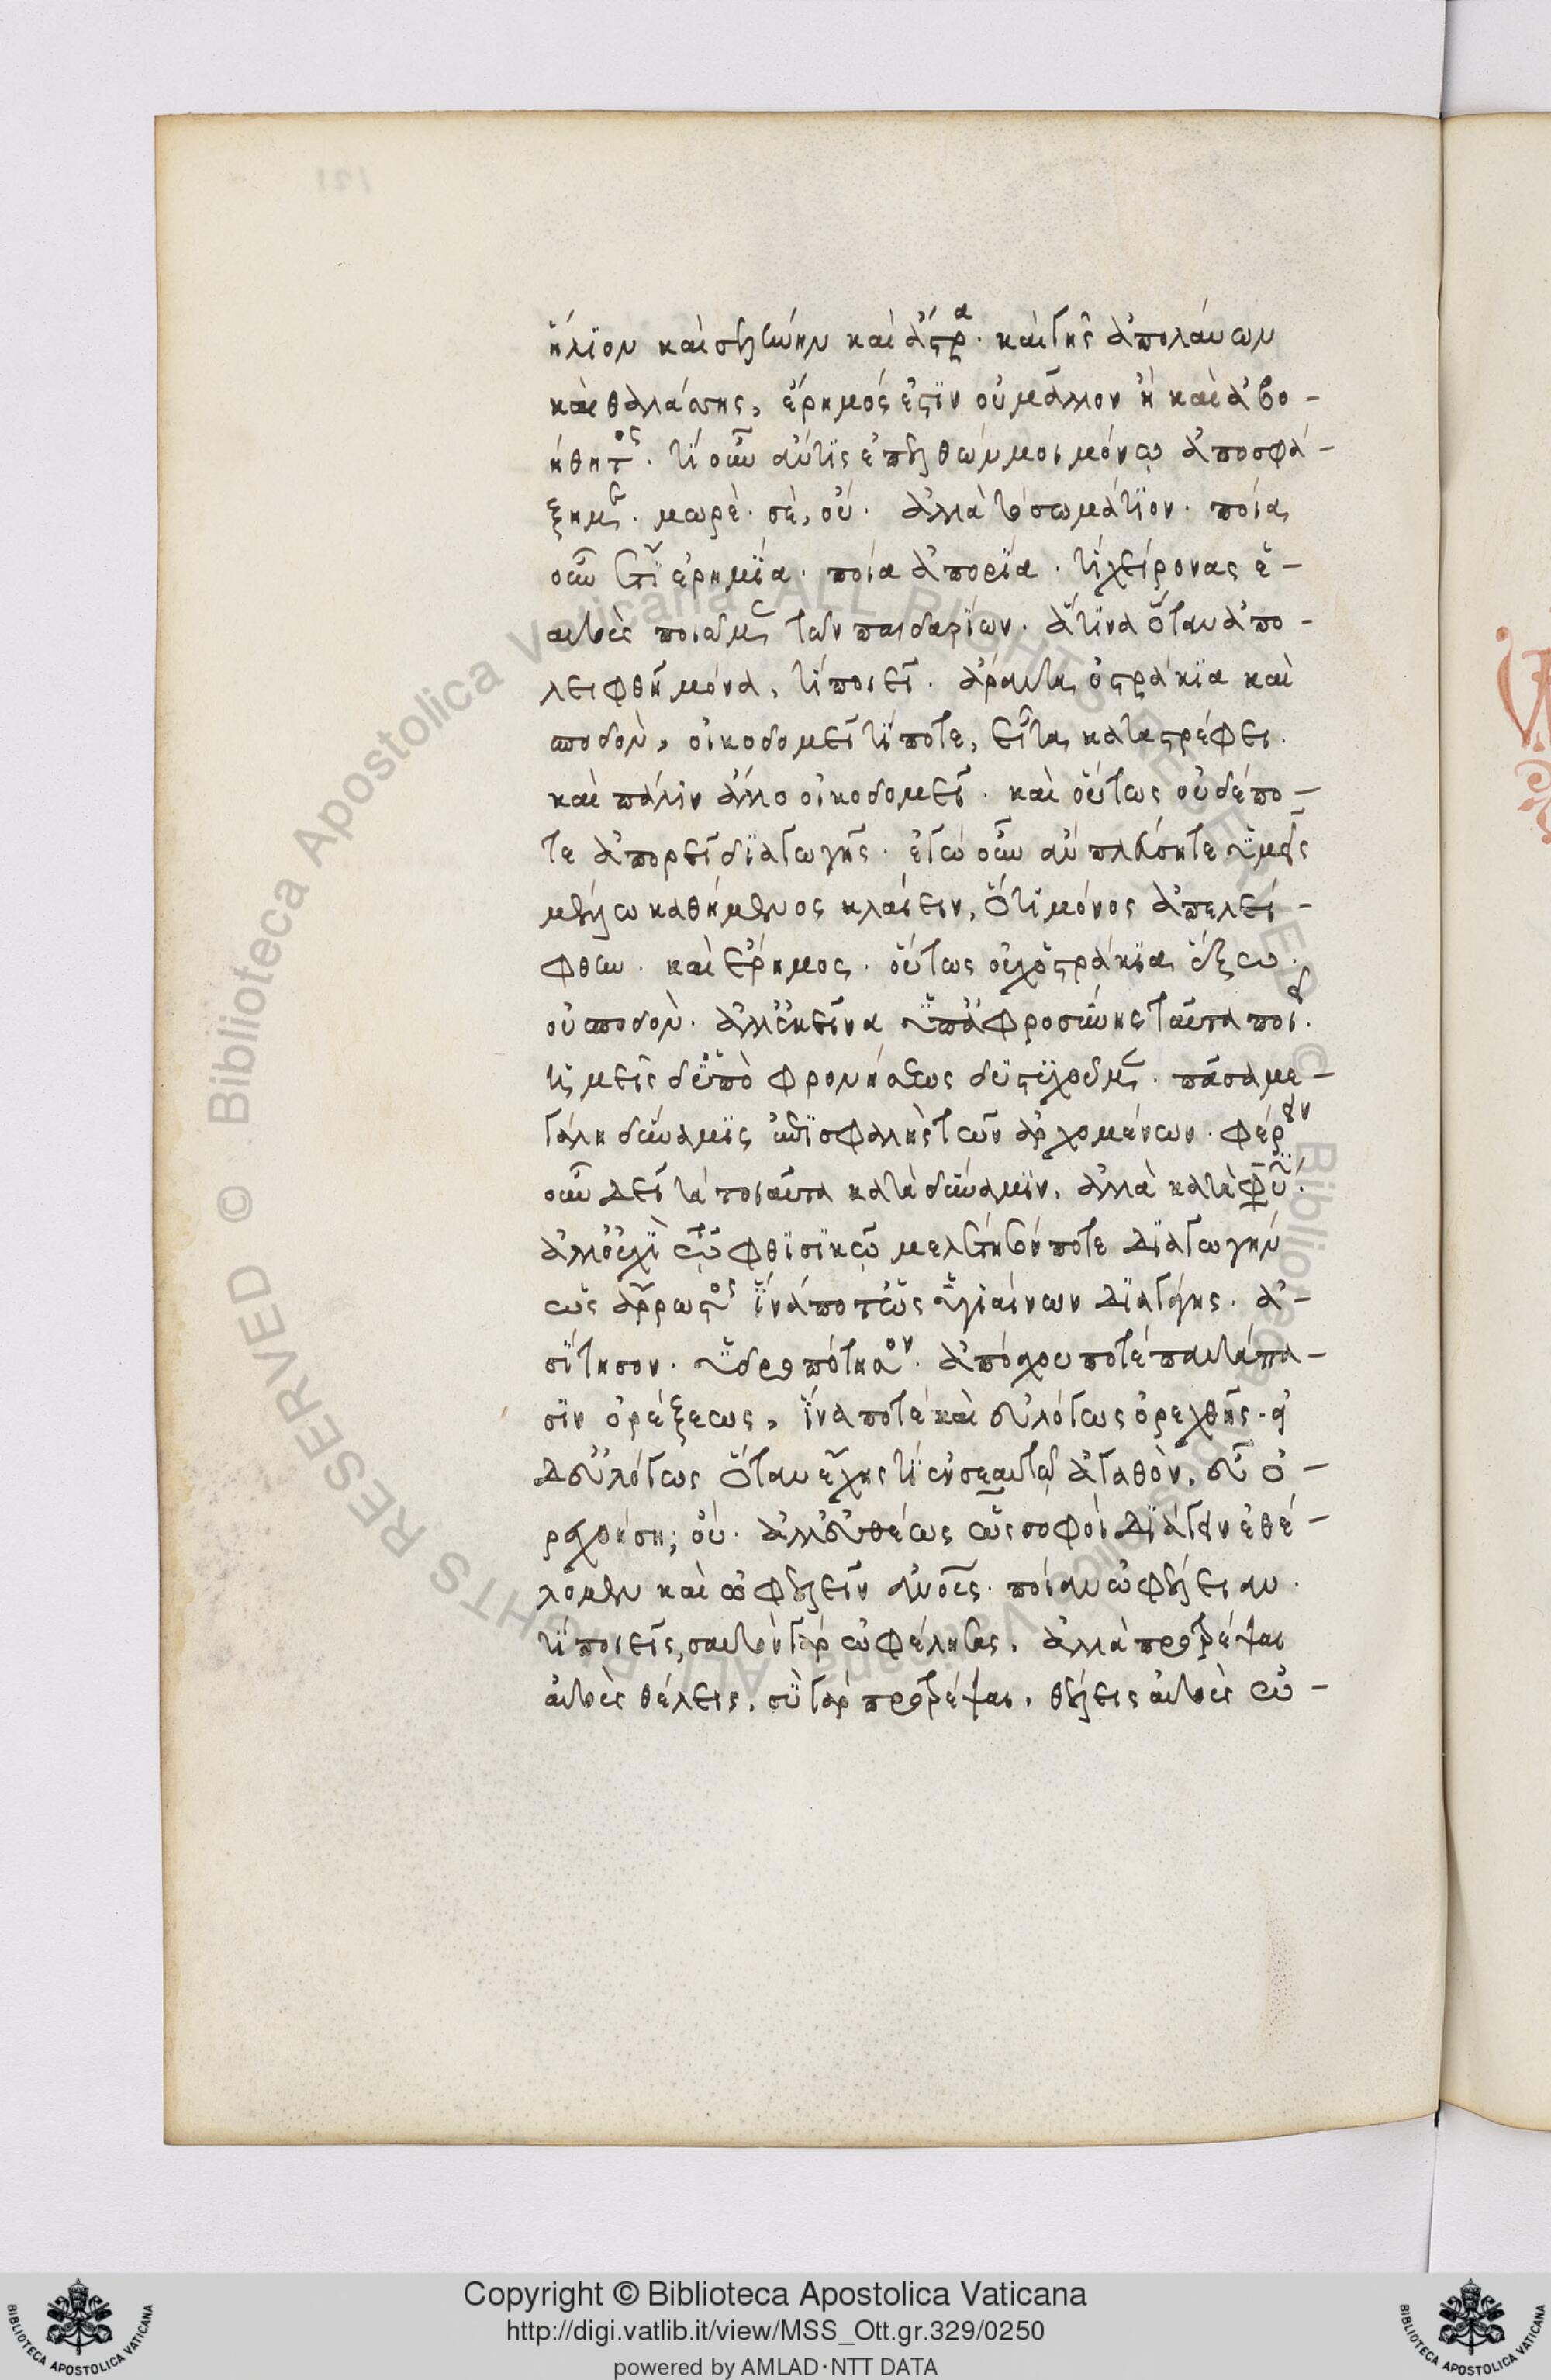 ἥλιον καὶ σελήνην καὶ ἄστρα. καὶ γῆς ἀπολαύων
καὶ θαλάσσης, ἔρημός ἐστιν οὐ μᾶλλον ἢ καὶ ἀβο-
ήθητος. τί οὖν ἄν τις ἐπελθών μοι μόνῳ ἀποσφά-
ξῃ με. μωρὲ. σὲ, οὔ. ἀλλὰ τὸ σωμάτιον. ποία
οὖν ἔτι ἐρημία. ποία ἀπορία. τί χείρονας ἑ-
αυτοὺς ποιοῦμεν τῶν παιδαρίων. ἅτινα ὅταν ἀπο-
λειφθῇ μόνα, τί ποιεῖ. ἄραντα ὀστράκια καὶ
σποδὸν, οἰκοδομεῖ τί ποτε, εἶτα καταστρέφει.
καὶ πάλιν ἄλλο οἰκοδομεῖ. καὶ οὕτως οὐδέπο-
τε ἀπορεῖ διαγωγῆς. ἐγὼ οὖν ἂν πλεύσητε ὑμεῖς
μέλλω καθήμενος κλαίειν, ὅτι μόνος ἀπελεί-
φθην. καὶ ἔρημος. οὕτως οὐκ ὀστράκια ἕξω.
οὐ σποδὸν. ἀλλ' ἐκεῖνα ὑπ' ἀφροσύνης ταῦτα ποιεῖ.
ἡμεῖς δ' ὑπὸ φρονήσεως δυστυχοῦμεν. πᾶσα με-
γάλη δύναμις ἐπισφαλὴς τῶν ἀρχομένων. φέρειν
οὖν δεῖ τὰ τοιαῦτα κατὰ δύναμιν, ἀλλὰ κατὰ φύσιν.
ἀλλ' οὐχὶ τῷ φθισικῷ μελέτησόν ποτε διαγωγὴν
ὡς ἄρρωστος ἵνα ποτὲ ὡς ὑγιαίνων διαγάγῃς. ἀ-
σίτησον. ὑδροπότησον. ἀπόσχου ποτὲ παντάπα-
σιν ὀρέξεως, ἵνα ποτὲ καὶ εὐλόγως ὀρεχθῇς. εἰ
δ' εὐλόγως ὅταν ἔχῃς τί ἐν σεαυτῷ ἀγαθὸν, εὖ ὀ-
ρεχθήσῃ; οὔ. ἀλλ' εὐθέως ὡς σοφοὶ διάγειν ἐθέ-
λομεν καὶ ὠφελεῖν ἀνθρώπους. ποίαν ὠφέλειαν.
τί ποιεῖς, σαυτὸν γὰρ ὠφέλησας, ἀλλὰ προτρέψαι
αὐτοὺς θέλεις, σὺ γὰρ προτρέψαι, θέλεις αὐτοὺς ὠ-
Copyright © Biblioteca Apostolica Vaticana
http://digi.vatlib.it/view/MSS_Ott.gr.329/0250
powered by AMLAD·NTT DATA